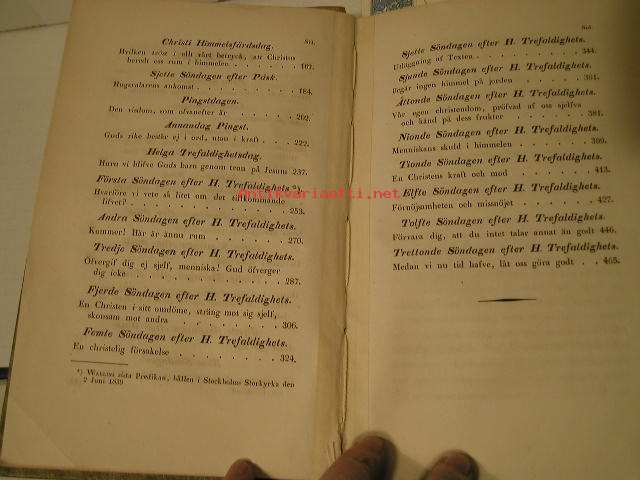 Christi Himmelsfärdsdag. Sid.
Hvilken tröst i allt vårt betryck, att Christus
beredt oss rum i himmelen . . . . . . 162.
Sjette Söndagen efter Påsk.
Hugsvalarens ankomst . . . . . . 184.
Pingstdagen.
Den visdom, som ofvanefter är . . . . . 202.
Annandag Pingst.
Guds rike består ej i ord, utan i kraft . . . 222.
Helga Trefaldighetsdag.
Huru vi blifve Guds barn genom tron på Jesum 237.
Första Söndagen efter H. Trefaldighets *).
Hvarföre i vete så litet om det tillkommande
lifvet? . . . . . . 253.
Andra Söndagen efter H. Trefaldighets.
Kommer! Här är ännu rum . . . . . 270.
Tredje Söndagen efter H. Trefaldighets.
Öfvergif dig ej sjelf, menniska! Gud öfverger
dig icke . . . . . . 287.
Fjerde Söndagen efter H. Trefaldighets.
En Christen i sitt omdöme, sträng mot sig sjelf,
skonsam mot andra . . . . . . 306.
Femte Söndagen efter H. Trefaldighets.
En christelig försakelse . . . . . . 324.
*) WALLINS sista Predikan, hållen i Stockholms Storkyrka den
2 Juni 1839
Sjette Söndagen efter H. Trefaldighets. Sid.
Utläggning af Texten . . . . . . 344.
Sjunde Söndagen efter H. Trefaldighets.
Ingen himmel på jorden . . . . . 361.
Åttonde Söndagen efter H. Trefaldighets.
Vår egen christendom, pröfvad af oss sjelfva
och känd på dess frukter . . . . . 381.
Nionde Söndagen efter H. Trefaldighets.
Menniskans skuld i himmelen . . . . 399.
Tionde Söndagen efter H. Trefaldighets.
En Christens kraft och mod . . . . . 413.
Elfte Söndagen efter H. Trefaldighets.
Förnöjsamheten och missnöjet . . . . 427.
Tolfte Söndagen efter H. Trefaldighets.
Förvara dig, att du intet talar annat än godt 446.
Trettonde Söndagen efter H. Trefaldighets.
Medan vi nu tid hafve, låt oss göra godt . . 465.
antikvariaatti.net